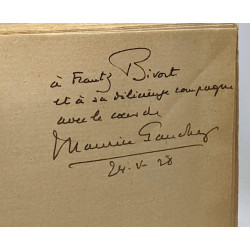 à Frantz Bivort
et à sa délicieuse compagne
avec le cœur de
Maurice Gauchez
24-V-28